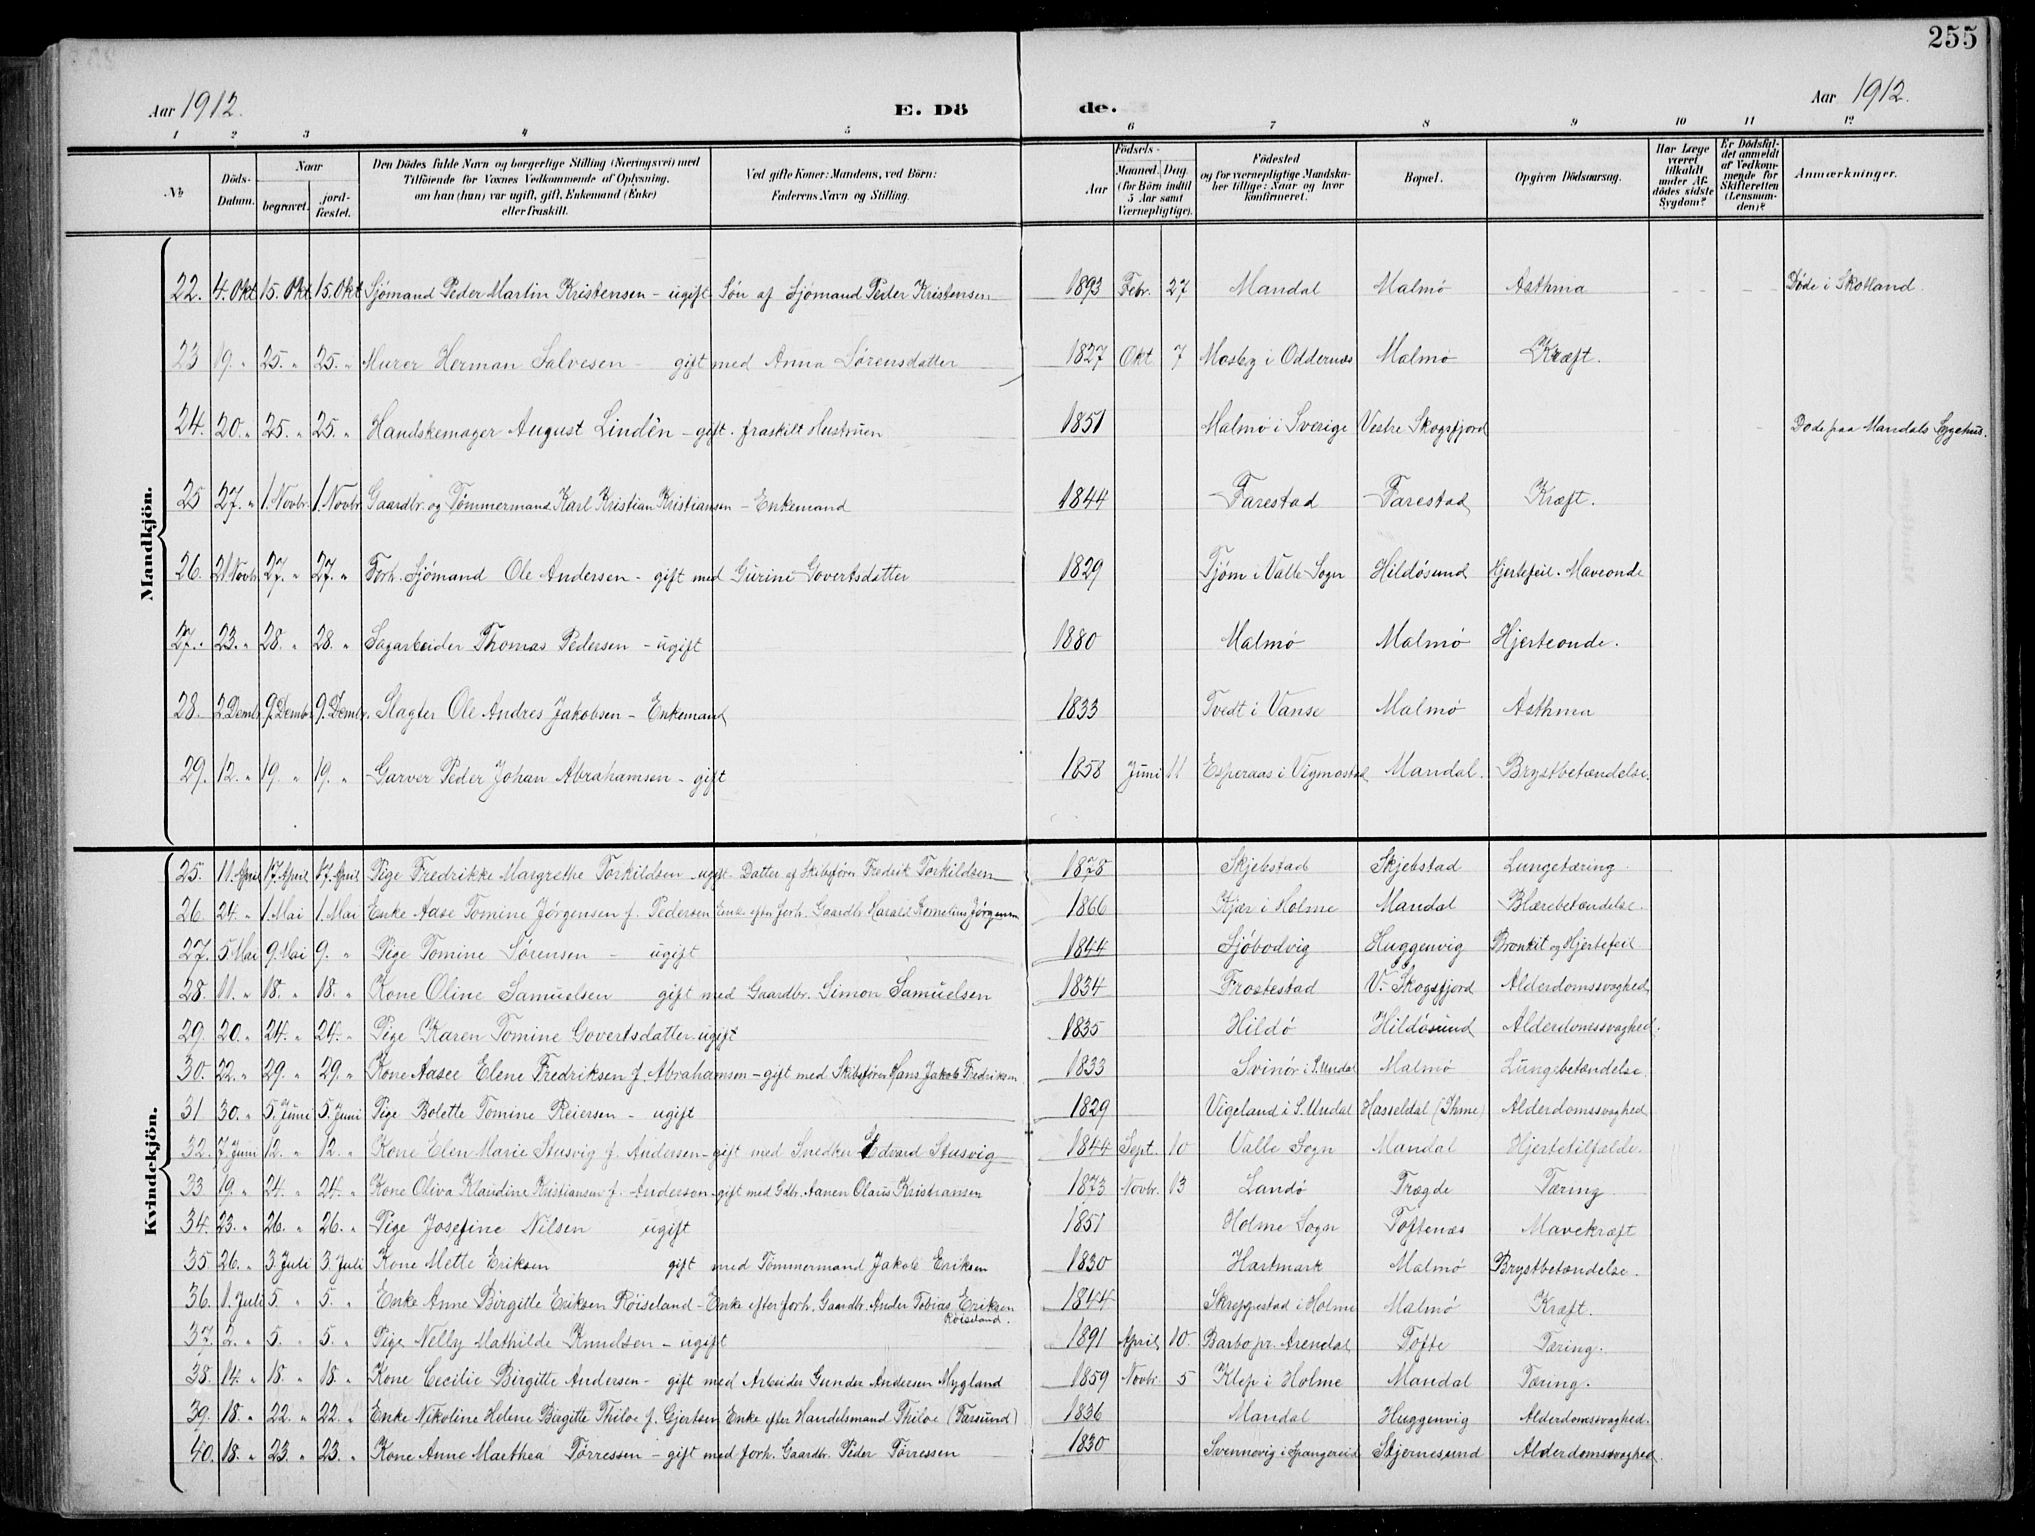 255
Aar 1912. E. Dö de. Aar 1912.
1 2 3 4 5 6 7 8 9 10 11 12
№ Döds-Datum. Naar begravet. jord-fæstet. Den Dödes fulde Navn og borgerlige Stilling (Næringsvei) med Tilföiende for Voxnes Vedkommende af Oplysning, om han (hun) var ugift, gift, Enkemand (Enke) eller fraskilt. Ved gifte Koner: Mandens, ved Börn: Faderens Navn og Stilling. Födsels- Aar Maaned. Dag. (for Börn indtil 5 Aar samt Værnepligtige). Födested og for værnepligtige Mandskaber tillige: Naar og hvor konfirmeret. Bopæl. Opgiven Dödsaarsag. Har Læge været tilkaldt under Afdödes sidste Sygdom? Er Dödsfaldet anmeldt af Vedkommende for Skifteretten (Lensmanden)? Anmærkninger.
Mandkjön.
22. 4. Okt. 15. Okt 15. Okt Sjömand Peder Martin Kristensen - ugift Sön af Sjömand Peder Kristensen 1893 Febr. 27 Mandal Malmö Asthma Döde i Skotland.
23 19. " 25. " 25. " Murer Herman Salvesen - gift med Anna Sörensdatter 1827 Okt 7 Mosby i Oddernæs Malmö Kræft.
24. 20. " 25. " 25. " Handskemager August Lindén - gift. fraskilt Hustruen 1851 Malmö i Sverige Vestre Skogsfjord Döde paa Mandals Sygehus.
25 27. " 1. Novbr. 1. Novbr. Gaardbr. og Tømmermand Karl Kristian Kristiansen - Enkemand 1844 Farestad Farestad Kræft.
26. 21. Novbr. 27. " 27. " Forh. Sjömand Ole Andersen - gift med Gurine Govertsdatter 1829 Tjöm i Valle Sogn Hildösund Hjertefeil. Maveonde
27. 23. " 28. " 28. " Sagarbeider Thomas Pedersen - ugift 1880 Malmö Malmö Hjerteonde.
28. 2. Dembr 9. Dembr 9. Dembr. Slagter Ole Andres Jakobsen - Enkemand 1833 Tvedt i Vanse Malmö Asthma
29. 12. " 19. " 19. " Garver Peder Johan Abrahamsen - gift 1858 Juni 11 Esperaas i Vigmostad Mandal. Brystbetændelse.
Kvindekjön.
25. 11. April 17. April 17. April Pige Fredrikke Margrethe Torkildsen ugift Datter af Skibsfører Fredrik Torkildsen 1878 Skjebstad Skjebstad Lungetæring.
26. 24. " 1. Mai 1. Mai Enke Aase Tomine Jörgensen f. Pedersen Enke efter forh. Gaardbr. Harald Kornelius Jörgensen 1866 Kjær i Holme Mandal Blærebetændelse.
27. 5. Mai 9. Mai 9. " Pige Tomine Sørensen - ugift 1844 Sjöbodvig Huggenvig Bronkit og Hjertefeil
28. 11. " 18. " 18. " Kone Oline Samuelsen gift med Gaardbr. Simon Samuelsen 1834 Frostestad V. Skogsfjord Alderdomssvaghed
29. 20. " 24. " 24. " Pige Karen Tomine Govertsdatter ugift 1835 Hildö Hildösund Alderdomssvaghed.
30. 22. " 29. " 29. " Kone Aasee Elene Fredriksen f. Abrahamsen - gift med Skibsfører Hans Jakob Fredriksen 1833 Svinör i S. Undal Malmö Lungebetændelse.
31 30. " 5. Juni 5. Juni Pige Bolette Tomine Reiersen - ugift 1829 Vigeland i S. Undal Hasseldal (Ihme) Alderdomssvaghed
32. 7. Juni 12. " 12. " Kone Elen Marie Stusvig f. Andersen - gift med Snedker Edvard Stusvig 1844 Sept. 10 Valle Sogn Mandal Hjertetilfælde.
33 19. " 24. " 24. " Kone Oliva Klaudine Kristiansen f. Anderson - gift med Gdbr. Aanen Olaus Kristiansen 1873 Novbr. 13 Landö Trægde Tæring.
34. 23. " 26. " 26. " Pige Josefine Nilsen ugift 1851 Holme Sogn Toftenæs Mavekræft
35. 26. " 3. Juli 3. Juli Kone Mette Eriksen gift med Tømmermand Jakob Eriksen 1830 Hartmark Malmö Brystbetændelse.
36. 1. Juli 5. " 5. " Enke Anne Birgitte Eriksen Röiseland - Enke efter forh. Gaardbr. Ander Tobias Eriksen 1844 Skreppestad i Holme Malmö Kræft.
Röiseland.
37. 2. " 5. " 5. " Pige Nelly Mathilde Knudsen - ugift 1891 April 10. Barbo pr. Arendal Tofte Tæring.
38. 14. " 18. " 18. " Kone Cecilie Birgitte Andersen - gift med Arbeider Gunder Andersen Mygland 1859 Novbr 5 Klep i Holme Mandal Tæring.
39. 18. " 22. " 22. " Enke Nikoline Helene Birgitte Thiloe f. Gjertsen Enke efter Handelsmand Thiloe (Farsund) 1836 Mandal Huggenvig Alderdomssvaghed.
40. 18. " 23. " 23. " Kone Anne Maethea Tørressen - gift med forh. Gaardbr. Peder Tørressen 1830 Svennevig i Spangereid Stjernesund Alderdomssvaghed